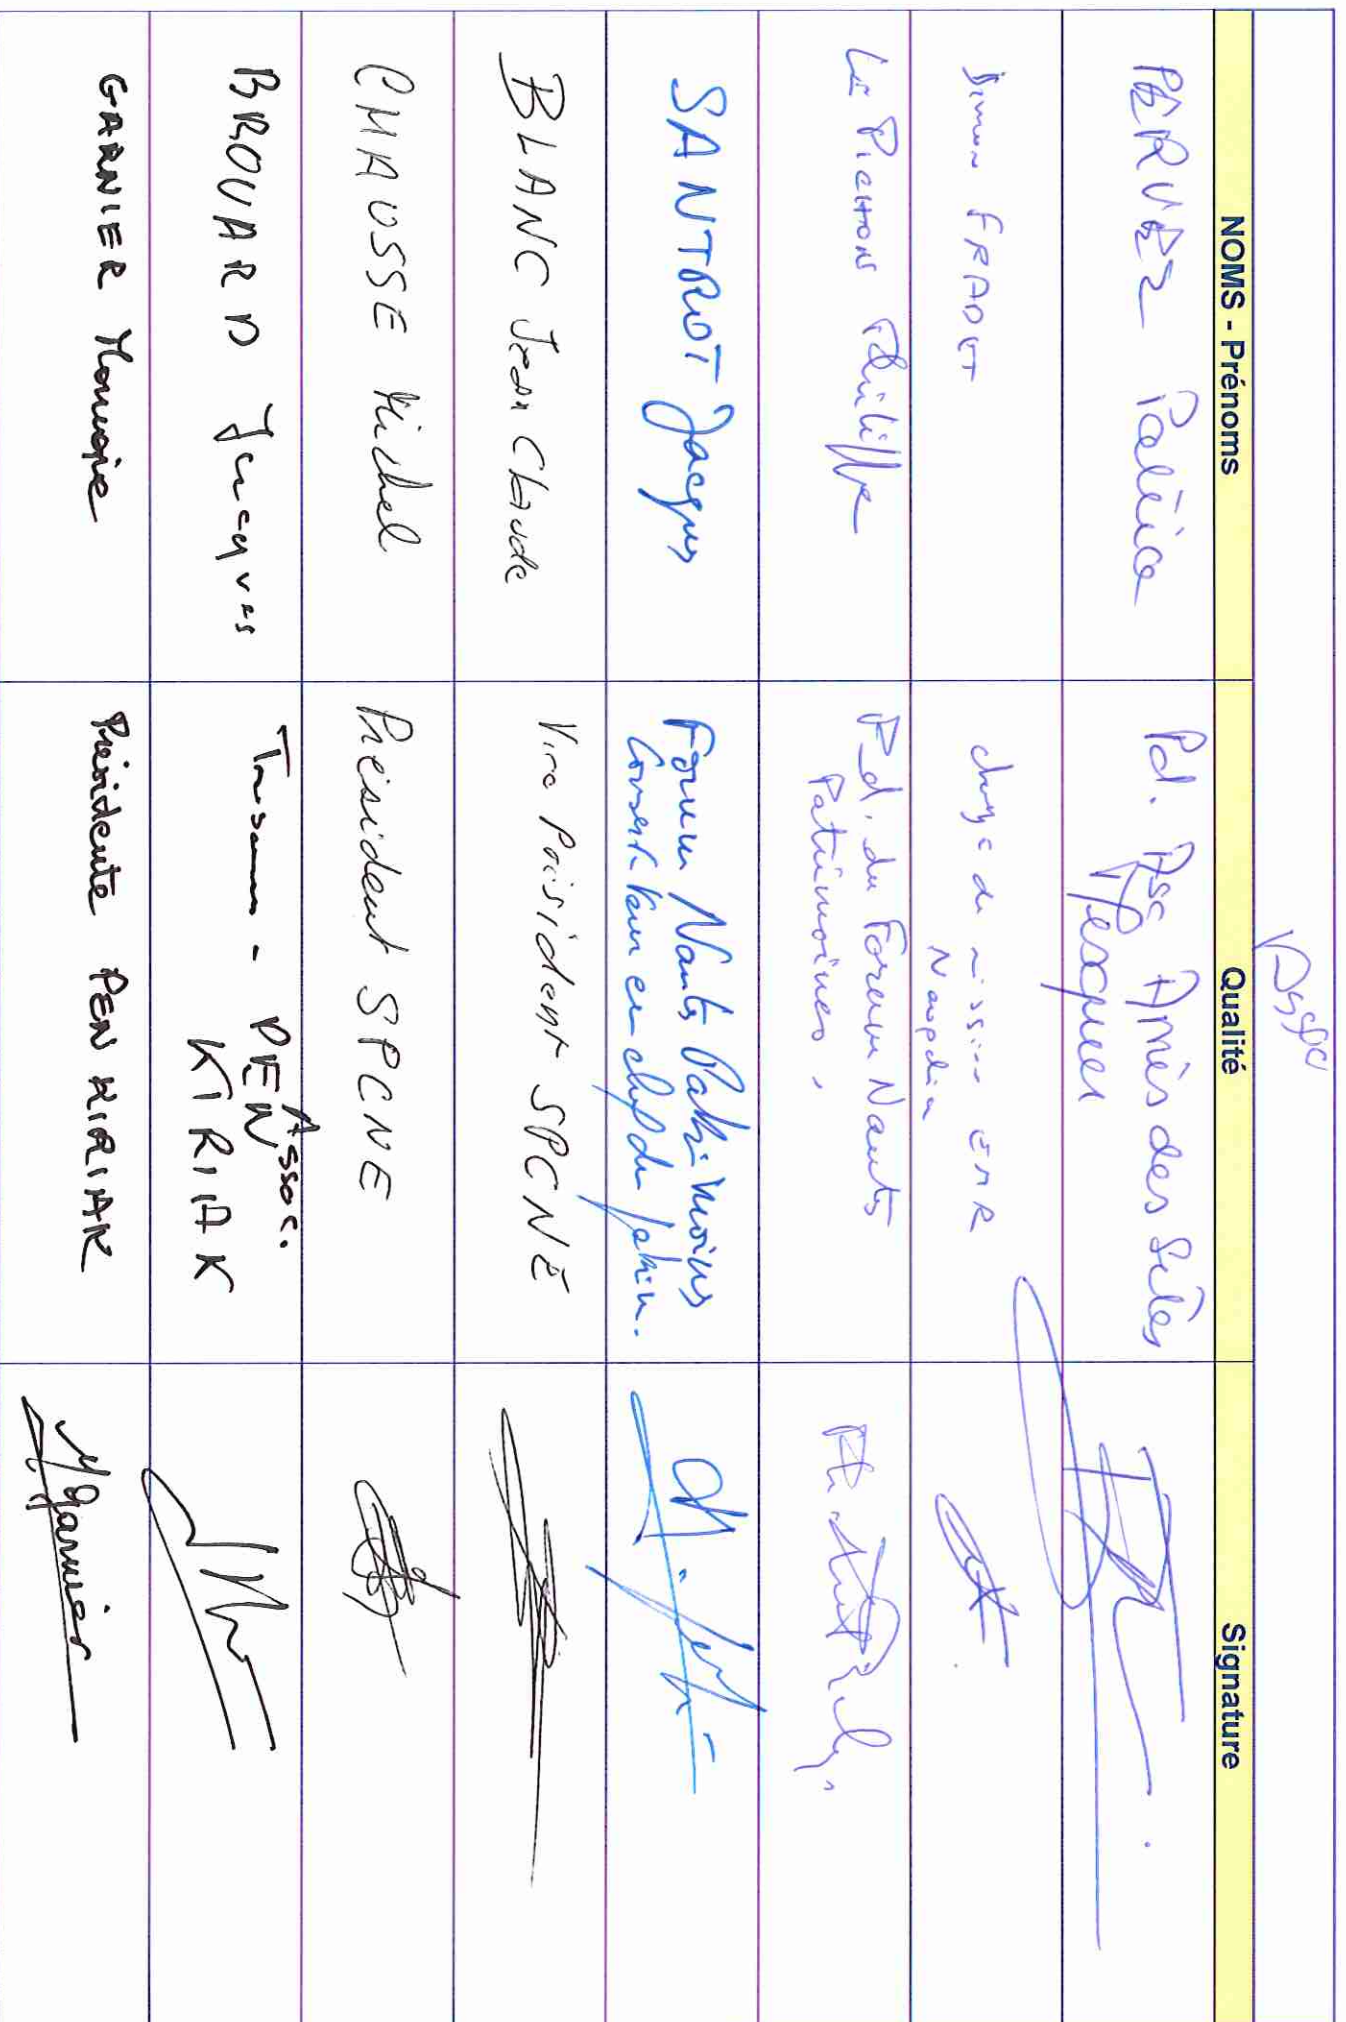 NOMS - Prénoms Qualité Signature
PEREZ Patrice Pd. Asc Amis des Sites
Mesquer
Simon FRADET chargé de mission EMR
Neopolia
Le Pichon Philippe Pd. du Forum Nantes
Patrimoines,
SANTROT Jacques Forum Nantes Patrimoines
Conservateur en chef du patrim.
BLANC Jean Claude Vice Président SPCNE
CHAUSSE Michel Président SPCNE
BROUARD Jacques Assoc.
PEN
KIRIAK
GARNIER Monique Présidente PEN KIRIAK MGarnier